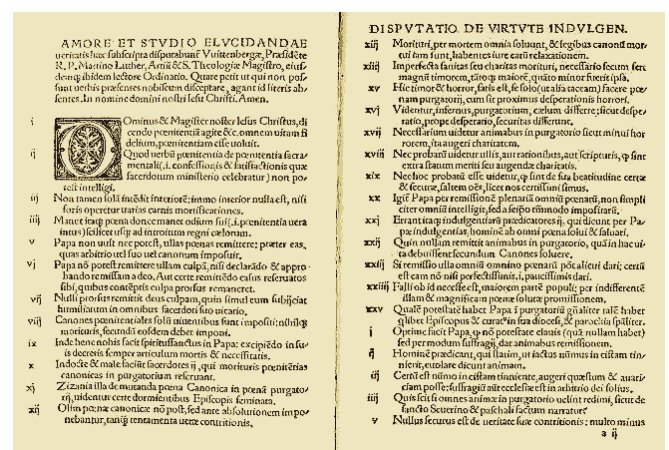 AMORE ET STVDIO ELVCIDANDAE
ueritatis hæc subscripta disputabunt Vuittenbergæ, Præsidete
R. P. Martino Luther, Artiũ & S. Theologiæ Magistro, eius-
dem ibidem lectore Ordinario. Quare petit ut qui non pos-
sunt uerbis præsentes nobiscum disceptare, agant id literis ab-
sentes. In nomine domini nostri Iesu Christi. Amen.
i DOminus & Magister noster Iesus Christus, di
cendo pœnitentiã agite &c. omnem uitam fi
delium, pœnitentiam esse uoluit.
ij Quod uerbũ pœnitentia de pœnitentia sacra
mentali (.i. confessionis & satisfactionis quæ
sacerdotum ministerio celebratur) non po-
test intelligi.
iij Non tamen solã intẽdit interiorẽ; immo interior nulla est, nisi
foris operetur uarias carnis mortificationes.
iiij Manet itaq; pœna donec manet odium sui (.i. pœnitentia uera
intus) scilicet usq; ad introitum regni cælorum.
v Papa non uult nec potest, ullas pœnas remittere; præter eas,
quas arbitrio uel suo uel canonum imposuit.
vj Papa nõ potest remittere ullam culpã, nisi declarãdo & appro-
bando remissam a deo. Aut certe remittẽdo casus reseruatos
sibi, quibus contẽptis culpa prorsus remaneret.
vij Nulli prorsus remittit deus culpam, quin simul eum subijciat
humiliatum in omnibus sacerdoti suo uicario.
viij Canones pœnitentiales solũ uiuentibus sunt impositi; nihilq;
morituris, secundũ eosdem debet imponi.
ix Inde bene nobis facit spiritussanctus in Papa; excipiẽdo in su-
is decretis semper articulum mortis & necessitatis.
x Indocte & male faciũt sacerdotes ij, qui morituris pœnitẽtias
canonicas in purgatorium reseruant.
xj Zizania illa de mutanda pœna Canonica in pœnã purgato-
rij, uidentur certe dormientibus Episcopis seminata.
xij Olim pœnæ canonicæ nõ post, sed ante absolutionem impo-
nebantur, tanq; tentamenta ueræ contritionis.
DISPVTATIO DE VIRTVTE INDVLGEN.
xiij Morituri, per mortem omnia soluunt, & legibus canonũ mor-
tui iam sunt, habentes iure earũ relaxationem.
xiiij Imperfecta sanitas seu charitas morituri, necessario secum fert
magnũ timorem, tãtoq; maiorẽ, quãto minor fuerit ipsa.
xv Hic timor & horror, satis est, se solo (ut alia taceam) facere pœ-
nam purgatorij, cum sit proximus desperationis horrori.
xvj Videntur, infernus, purgatorium, cælum differre; sicut despe-
ratio, prope desperatio, securitas differunt.
xvij Necessarium uidetur animabus in purgatorio sicut minui hor
rorem, ita augeri charitatem.
xviij Nec probatũ uidetur ullis, aut rationibus, aut scripturis, q̃ sint
extra statum meriti seu augendæ charitatis.
xix Nec hoc probatũ esse uidetur, q̃ sint de sua beatitudine certæ
& securæ, saltem oẽs, licet nos certissimi simus.
xx Igit̃ Papa per remissionẽ plenariã omniũ pœnarũ, non simpli
citer omniũ intelligit, sed a seipso tñmodo impositarũ.
xxj Errant itaq; indulgentiarũ prædicatores ij, qui dicunt per Pa-
pæ indulgentias, hominẽ ab omni pœna solui & saluari.
xxij Quin nullam remittit animabus in purgatorio, quã in hac ui-
ta debuissent secundum Canones soluere.
xxiij Si remissio ulla omniũ omnino pœnarũ põt alicui dari; certũ
est eam nõ nisi perfectissimis .i. paucissimis dari.
xxiiij Falli ob id necesse est, maiorem partẽ populi; per indifferentẽ
illam & magnificam pœnæ solutæ promissionem.
xxv Qualẽ potestatẽ habet Papa ĩ purgatoriũ gñaliter talẽ habet
q̃libet Episcopus & curat̃ in sua diocesi, & parochia spãliter.
i Optime facit Papa, q̃ nõ potestate clauis (quã nullam habet)
sed per modum suffragij, dat animabus remissionem.
ij Hominẽ prædicant, qui statim, ut iactus nũmus in cistam tin-
nierit, euolare dicunt animam.
iij Certũ est nũmo in cistam tinniente, augeri quæstum & auari-
ciam posse; suffragiũ aut̃ ecclesiæ est in arbitrio dei solius.
iiij Quis scit si omnes animæ in purgatorio uelint redimi, sicut de
sancto Seuerino & paschali factum narratur.
v Nullus securus est de ueritate suæ contritionis; multo minus
a ij